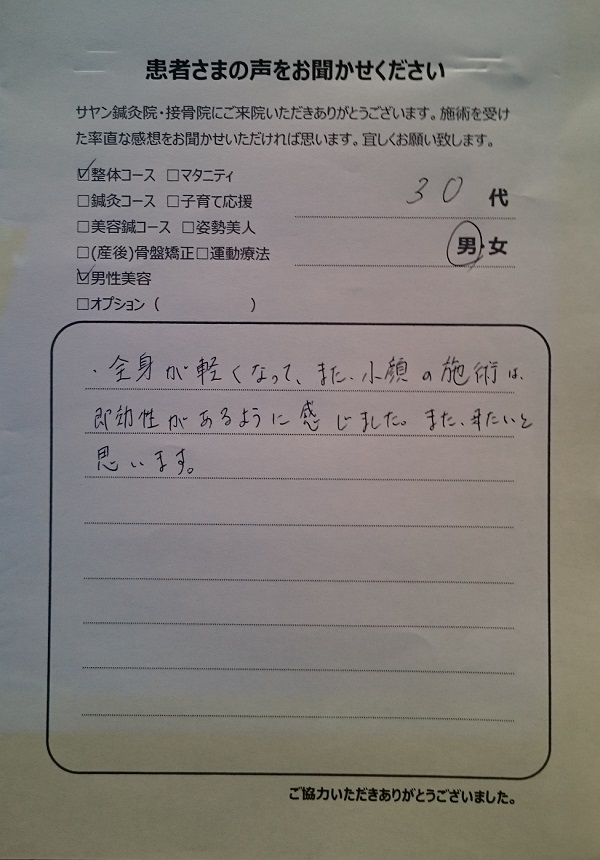 患者さまの声をお聞かせください
サヤン鍼灸院・接骨院にご来院いただきありがとうございます。施術を受け
た率直な感想をお聞かせいただければ思います。宜しくお願い致します。
☑整体コース □マタニティ
30 代
□鍼灸コース □子育て応援
□美容鍼コース □姿勢美人
男・女
□(産後)骨盤矯正□運動療法
☑男性美容
□オプション（　　　　　　）
・全身が軽くなって、また、小顔の施術は、
即効性があるように感じました。また、来たいと
思います。
ご協力いただきありがとうございました。